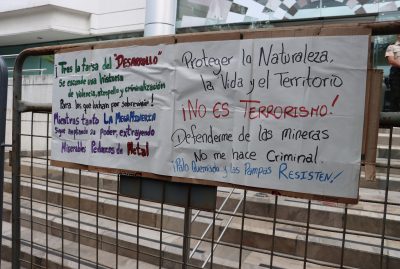 ¡Tras la farsa del "DESARROLLO"
Se esconde una historia
de violencia, atropello y criminalización
Para los que luchan por sobrevivir!
Mientras tanto LA MEGAMINERÍA
Sigue ampliando su poder, extrayendo
Miserables Pedazos de Metal
Proteger la Naturaleza,
la Vida y el Territorio
¡NO ES TERRORISMO!
Defenderme de las mineras
No me hace Criminal.
¡Palo Quemado y las Pampas RESISTEN!